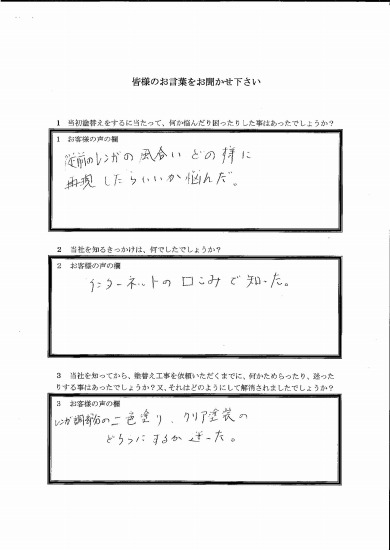 皆様のお言葉をお聞かせ下さい
1 当初塗替えをするに当たって、何か悩んだり困ったりした事はあったでしょうか?
1 お客様の声の欄
従前のレンガの風合いどの様に
再現したらいいか悩んだ。
2 当社を知るきっかけは、何でしたでしょうか?
2 お客様の声の欄
インターネットの口こみで知った。
3 当社を知ってから、塗替え工事を依頼いただくまでに、何かためらったり、迷った
りする事はあったでしょうか?又、それはどのようにして解消されましたでしょうか?
3 お客様の声の欄
レンガ調部分の二色塗り、クリア塗装の
どちらにするか迷った。